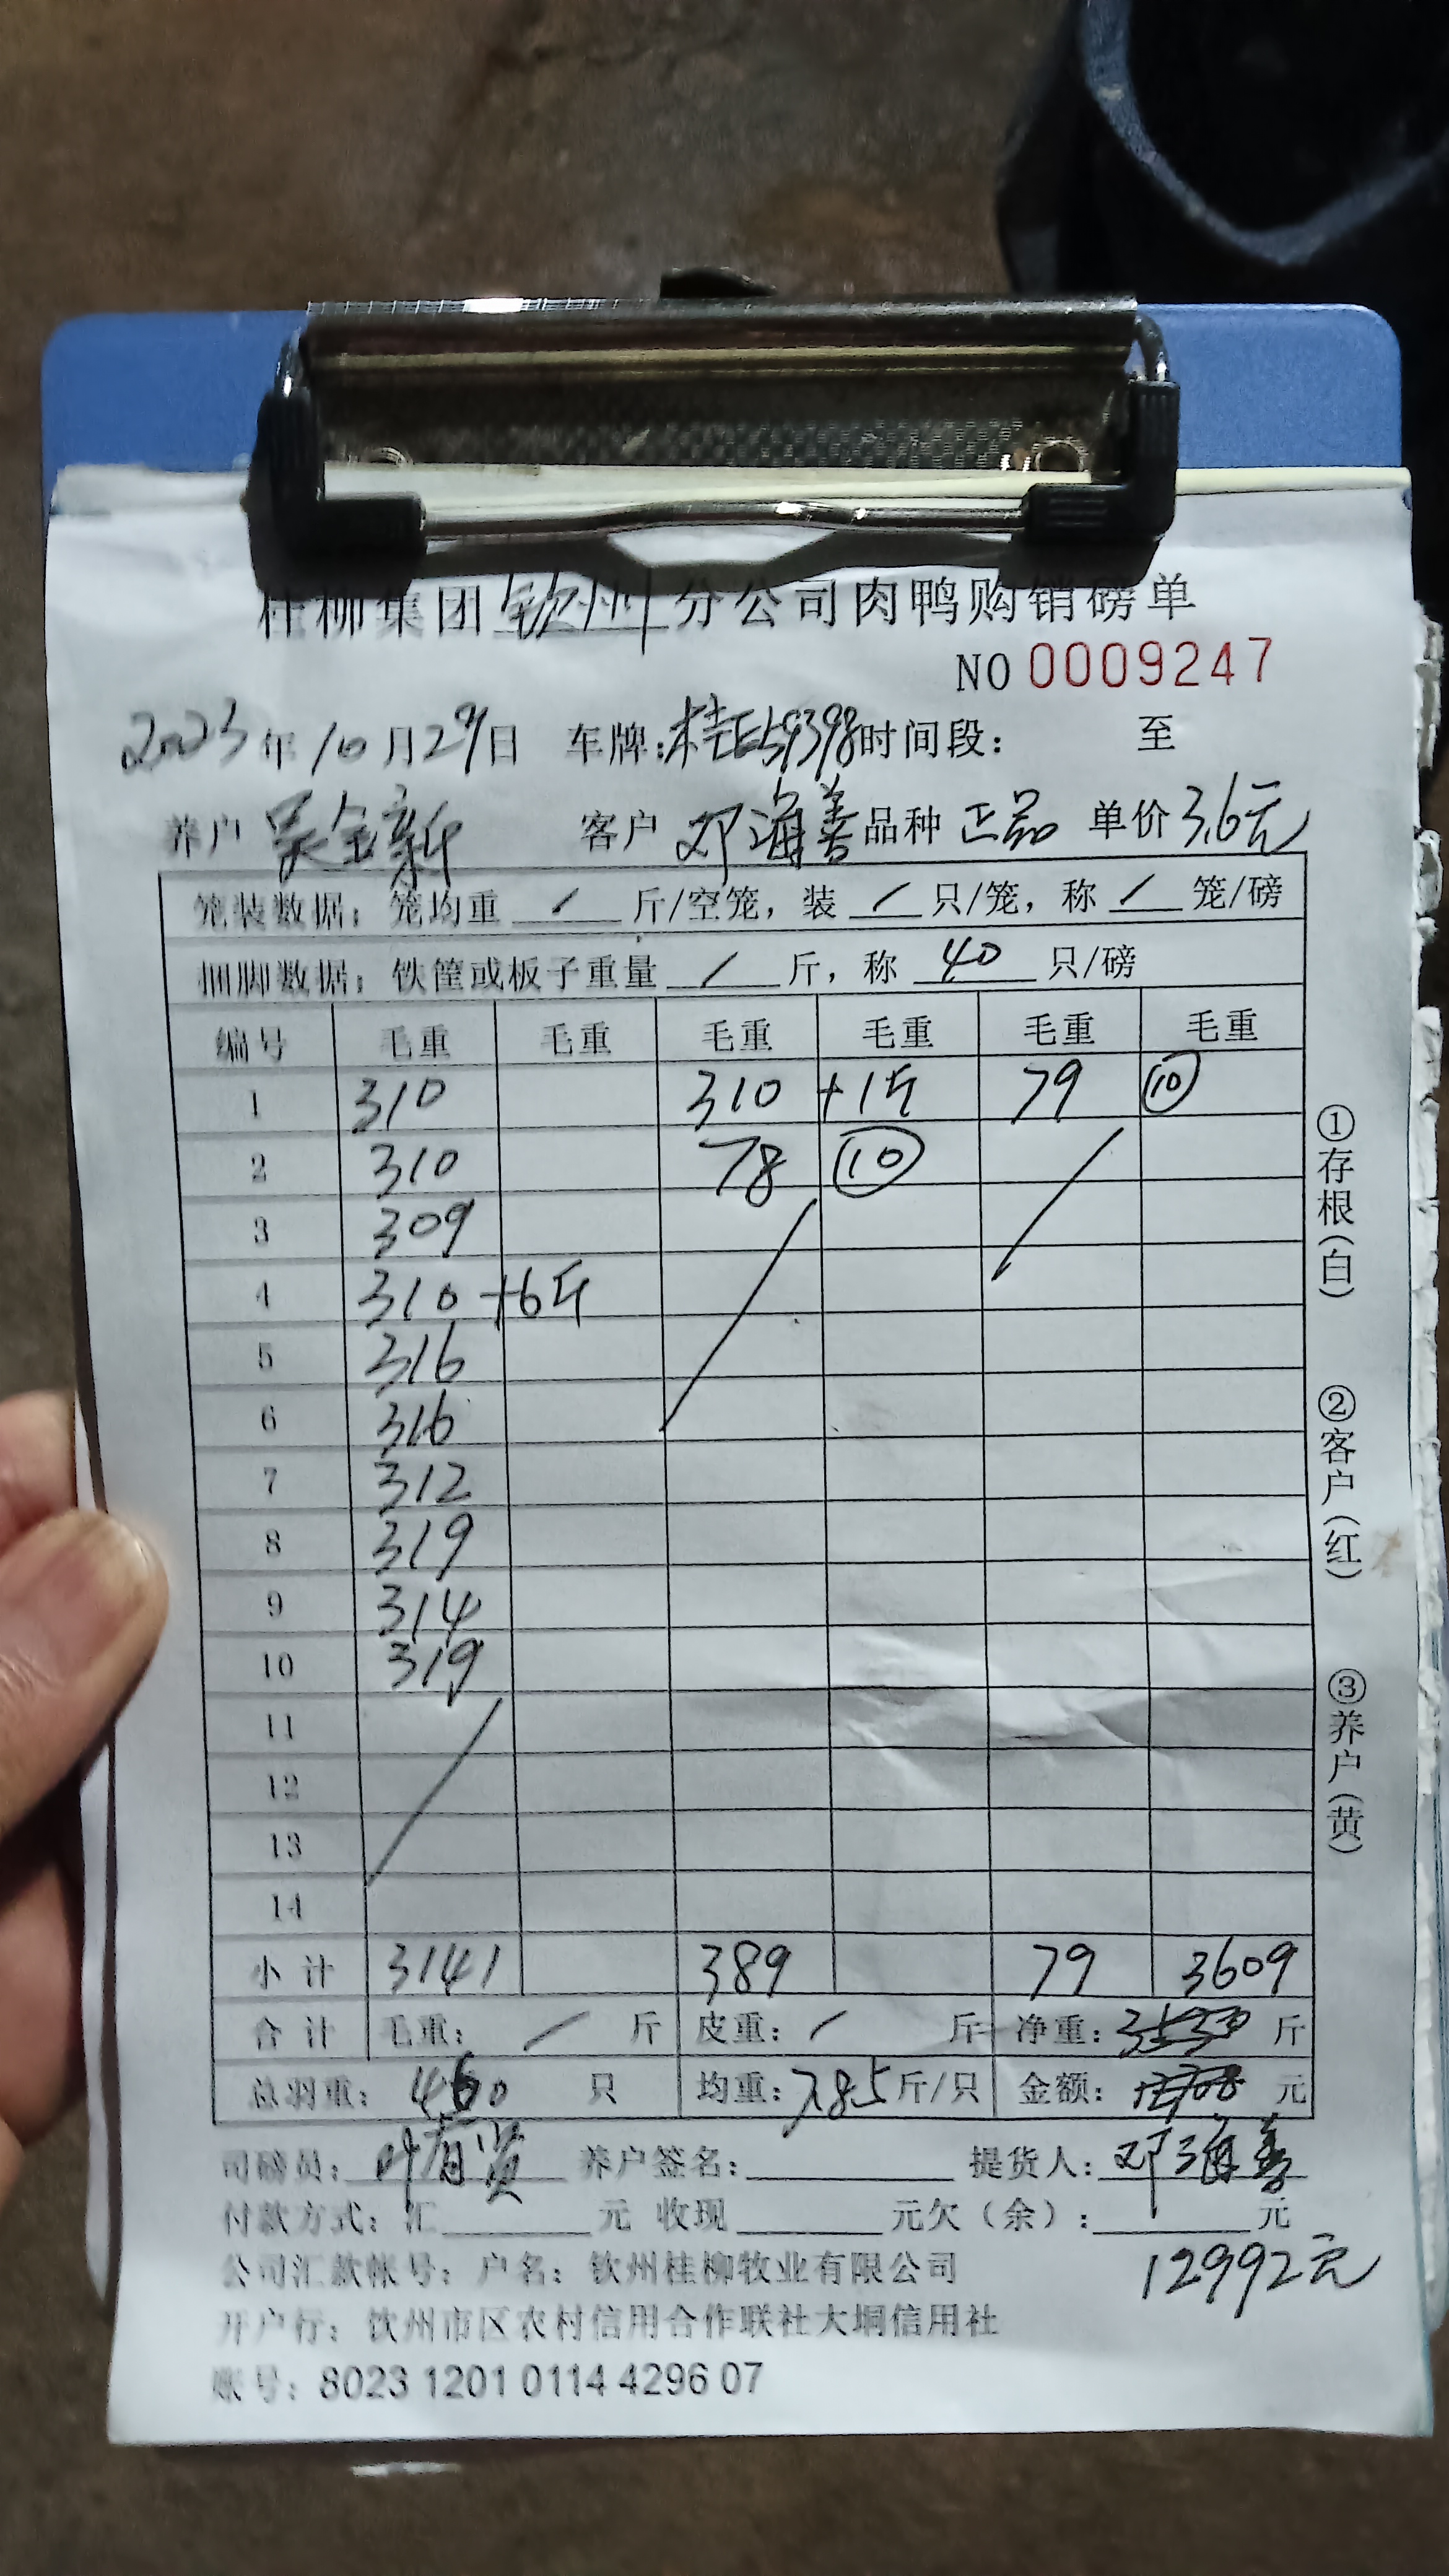 桂柳集团钦州分公司肉鸭购销磅单
NO 0009247
2023年10月29日 车牌:桂E59398时间段: 至
养户 吴全新 客户 邓海善 品种 正品 单价 3.6元
笼装数据: 笼均重 / 斤/空笼, 装 / 只/笼, 称 / 笼/磅
捆脚数据: 铁筐或板子重量 / 斤, 称 40 只/磅
编号 毛重 毛重 毛重 毛重 毛重 毛重
1 310 310 +1斤 79 ⑩
2 310 78 ⑩
3 309
4 310 +6斤
5 316
6 316
7 312
8 319
9 314
10 319
11
12
13
14
小计 3141 389 79 3609
合计 毛重: / 斤 皮重: / 斤 净重: 3530 斤
总羽重: 460 只 均重: 7.85 斤/只 金额: 元
司磅员: 叶有贤 养户签名: 提货人: 邓海善
付款方式: 汇 元 收现 元欠(余): 元
12992元
公司汇款帐号: 户名: 钦州桂柳牧业有限公司
开户行: 钦州市区农村信用合作联社大垌信用社
账号: 8023 1201 0114 4296 07
①存根(白)
②客户(红)
③养户(黄)